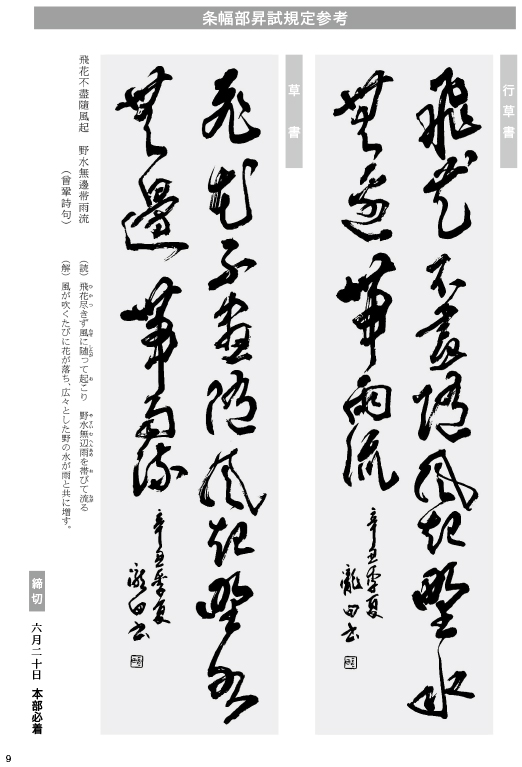 条幅部昇試規定参考
行草書
飛花不盡隨風起野水
無邊帯雨流
辛丑季夏
瀧田書
草書
飛花不盡隨風起野水
無邊帯雨流
辛丑季夏
瀧田書
飛花不盡隨風起　野水無邊帯雨流
（曾鞏詩句）
（読）飛花尽きず風に随って起こり　野水無辺雨を帯びて流る
（解）風が吹くたびに花が落ち、広々とした野の水が雨と共に増す。
締切
六月二十日　本部必着
9